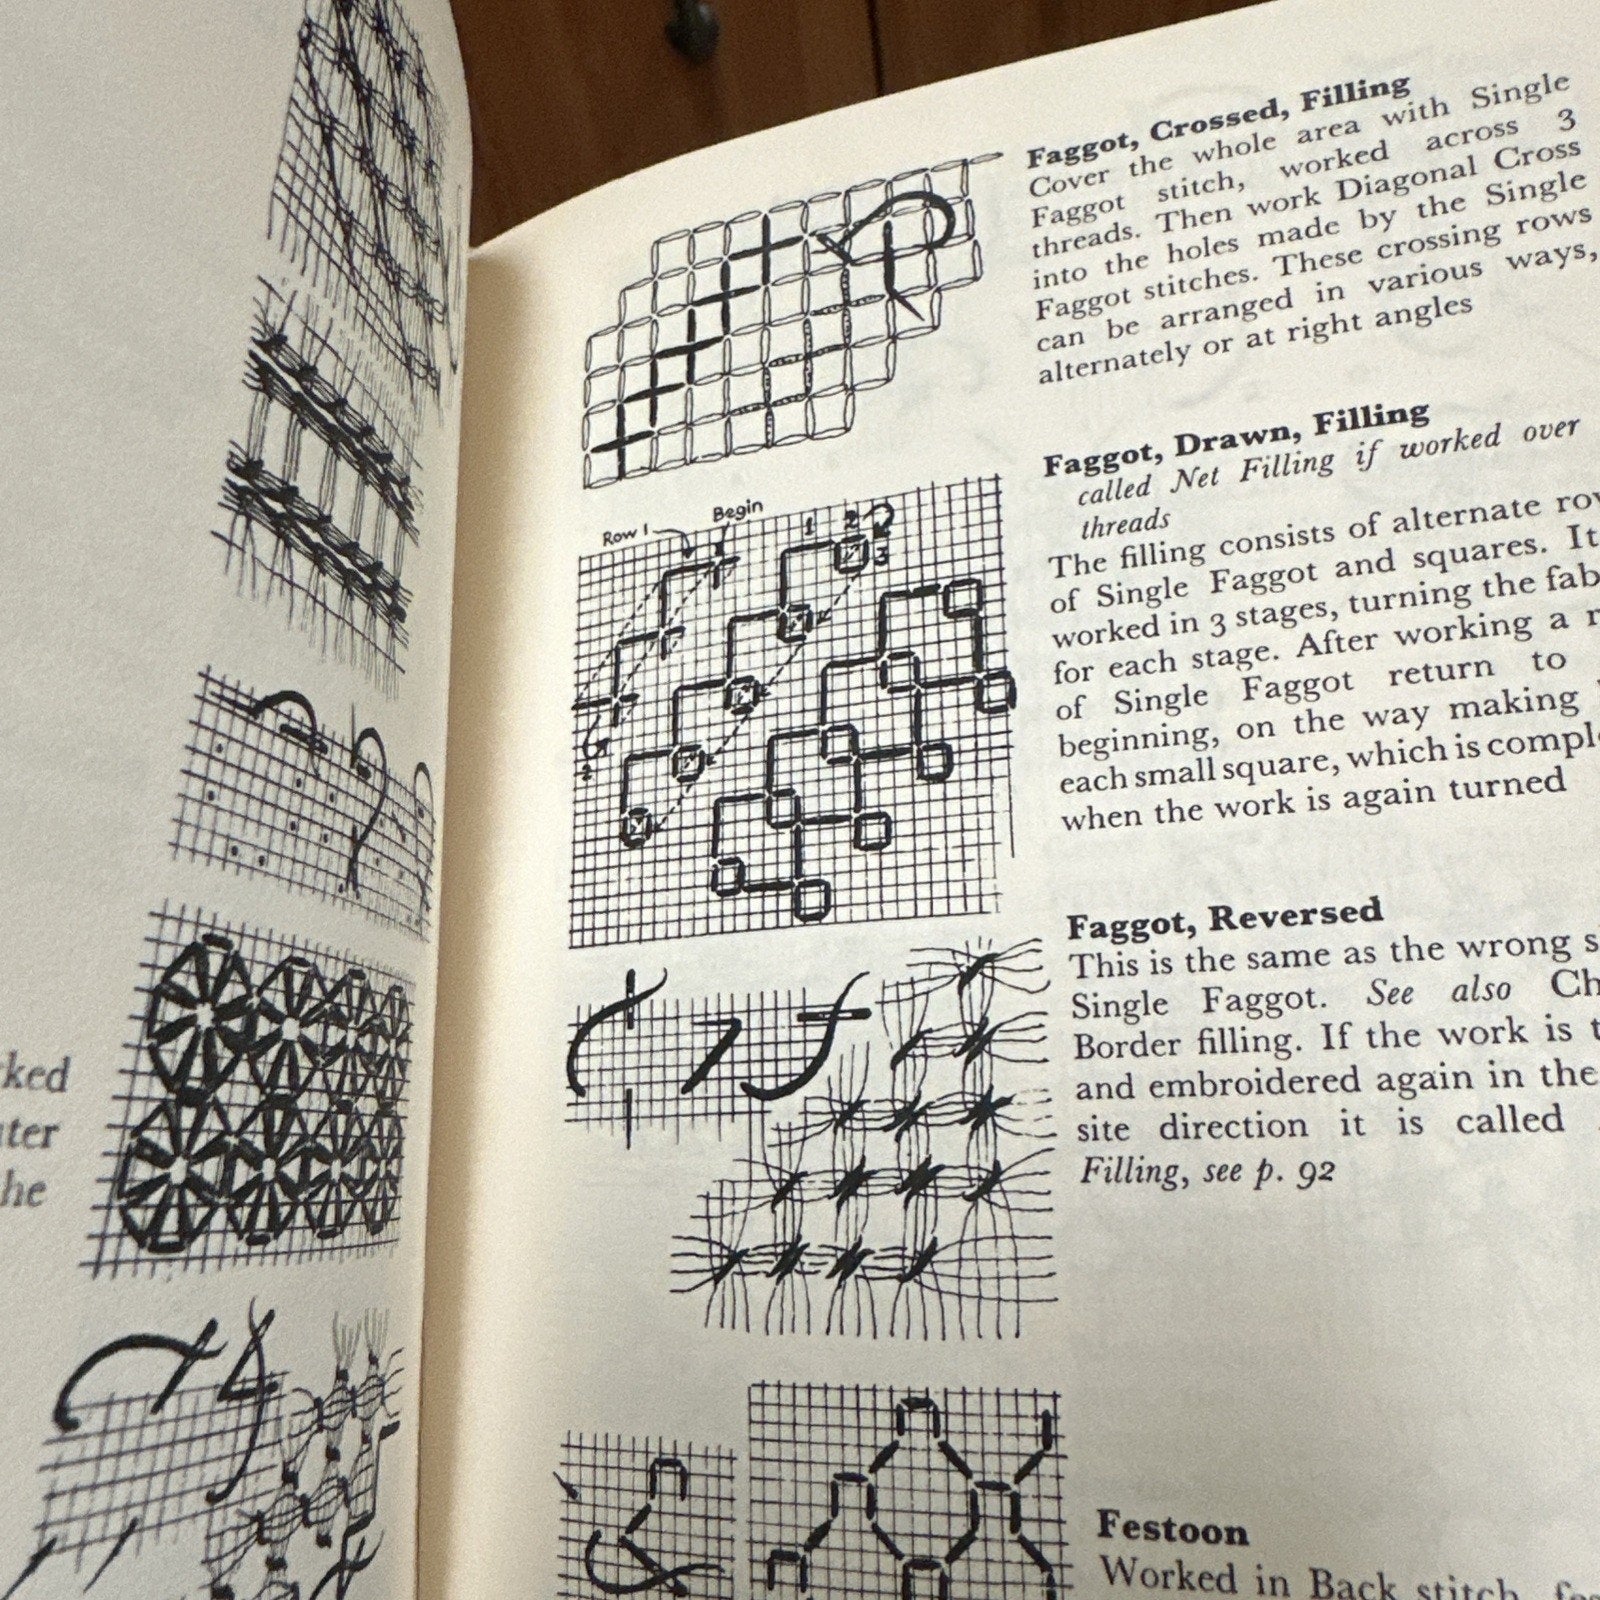 ked
ter
he
Faggot, Crossed, Filling
Cover the whole area with Single
Faggot stitch, worked across 3
threads. Then work Diagonal Cross
into the holes made by the Single
Faggot stitches. These crossing rows
can be arranged in various ways,
alternately or at right angles
Row 1
Begin
1
2
3
Faggot, Drawn, Filling
called Net Filling if worked over
threads
The filling consists of alternate ro
of Single Faggot and squares. It
worked in 3 stages, turning the fab
for each stage. After working a r
of Single Faggot return to
beginning, on the way making
each small square, which is compl
when the work is again turned
Faggot, Reversed
This is the same as the wrong s
Single Faggot. See also Ch
Border filling. If the work is t
and embroidered again in the
site direction it is called
Filling, see p. 92
Festoon
Worked in Back stitch,